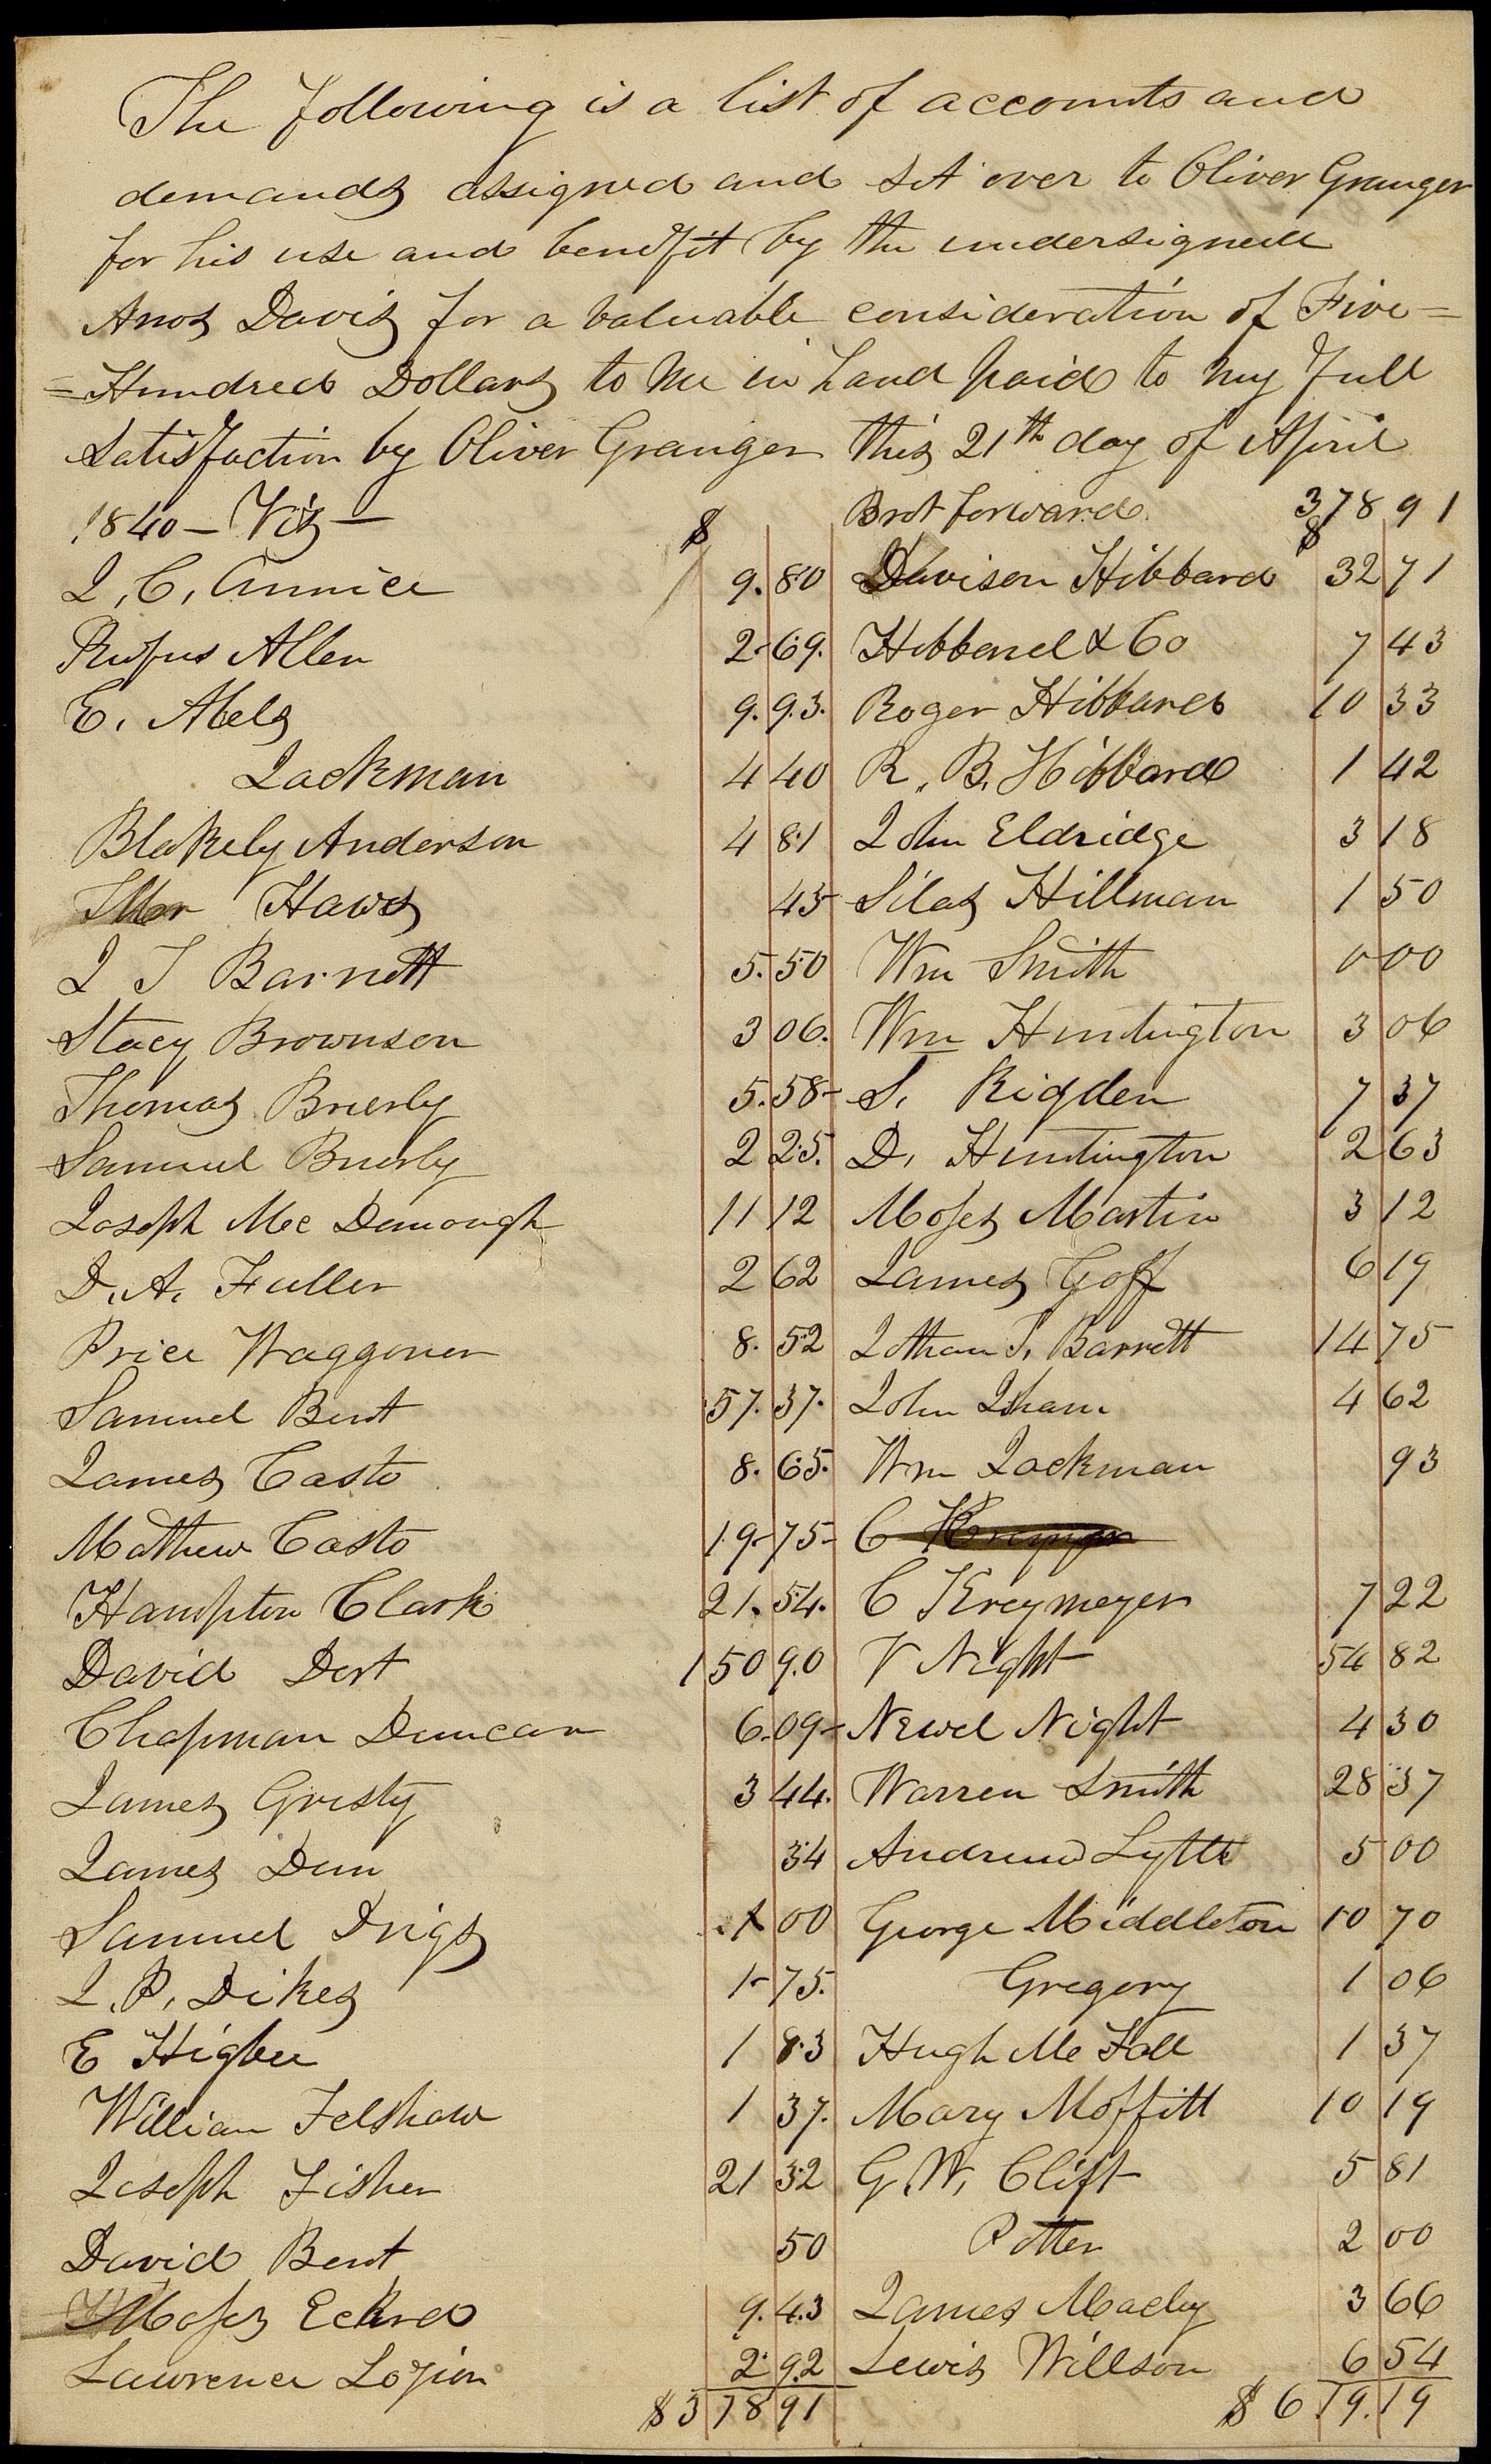 The following is a list of accounts and
demands assigned and set over to Oliver Granger
for his use and benefit by the undersigned
Amos Davis for a valuable consideration of Five=
=Hundred Dollars to me in hand paid to my full
Satisfaction by Oliver Granger this 21th day of April
1840 — Viz — $
J, C, Annice 9. 80
Rufus Allen 2- 69.
E. Abels 9. 93.
Jackman 4 40
Blakely Anderson 4 81
Haws 43
J T Barnett 5. 50
Stacy Brownson 3 06.
Thomas Brierly 5. 58-
Samuel Brierly 2 25.
Joseph Mc Donough 11 12
D. A. Fuller 2 62
Price Waggoner 8. 52
Samuel Bent 57. 37.
James Casto 8. 65.
Mathew Casto 19- 75-
Hampton Clark 21. 54.
David Dort 150 90
Chapman Duncan 6. 09-
James Gristy 3 44.
James Dun 34
Samuel Drigs 1 00
J. P, Dikes 1- 75.
E Higbee 1 83
William Felshaw 1 37.
Joseph Fisher 21 32
David Bent 50
Moses Eckred 9. 43
Lawrence Lozion 2 92
$378 91
Brot forward. 378 91
$
Davison Hibbard 32 71
Hibbard & Co 7 43
Roger Hibbard 10 33
R. B. Hibbard 1 42
John Eldridge 3 18
Silas Hillman 1 50
Wm Smith 0 00
Wm Huntington 3 06
S. Rigden 7 37
D. Huntington 2 63
Moses Martin 3 12
James Goff 6 19
Jothan T. Barrett 14 75
John Isham 4 62
Wm Jackman 93
C
C Kreymeyer 7 22
V Night 54 82
Newel Night 4 30
Warren Smith 28 37
Andrew Lytle 5 00
George Middleton 10 70
Gregory 1 06
Hugh Mc Fall 1 37
Mary Moffitt 10 19
G. W. Clift 5 81
Potter 2 00
James Macby 3 66
Lewis Willson 6 54
$ 619. 19